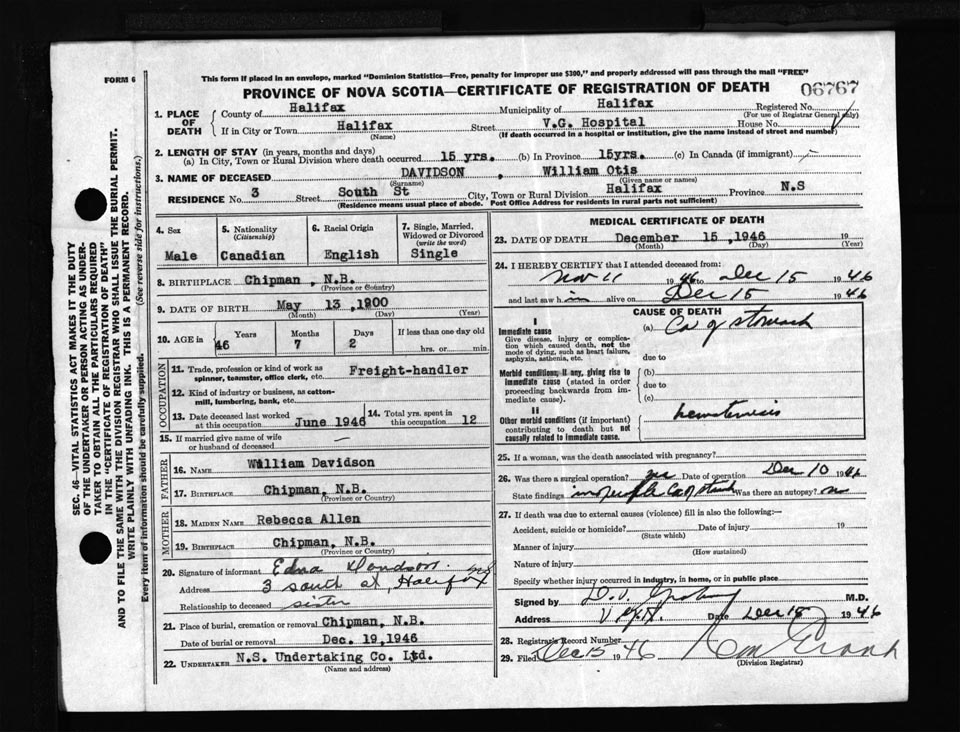 FORM 6
This form if placed in an envelope, marked "Dominion Statistics—Free, penalty for improper use $300," and properly addressed will pass through the mail "FREE"
PROVINCE OF NOVA SCOTIA—CERTIFICATE OF REGISTRATION OF DEATH 06767
1. PLACE OF DEATH { County of Halifax Municipality of Halifax Registered No.
(For use of Registrar General only)
If in City or Town Halifax Street V.G. Hospital House No.
(Name) (If death occurred in a hospital or institution, give the name instead of street and number)
2. LENGTH OF STAY (in years, months and days)
(a) In City, Town or Rural Division where death occurred 15 yrs. (b) In Province 15yrs. (c) In Canada (if immigrant)
3. NAME OF DECEASED DAVIDSON , William Otis
(Surname) (Given name or names)
RESIDENCE No. 3 Street South St City, Town or Rural Division Halifax Province N.S
(Residence means usual place of abode. Post Office Address for residents in rural parts not sufficient)
SEC. 46—VITAL STATISTICS ACT MAKES IT THE DUTY
OF THE UNDERTAKER OR PERSON ACTING AS UNDER-
TAKER TO OBTAIN ALL THE PARTICULARS REQUIRED
IN THE "CERTIFICATE OF REGISTRATION OF DEATH"
AND TO FILE THE SAME WITH THE DIVISION REGISTRAR WHO SHALL ISSUE THE BURIAL PERMIT.
WRITE PLAINLY WITH UNFADING INK. THIS IS A PERMANENT RECORD.
Every item of information should be carefully supplied. (See reverse side for instructions.)
4. Sex
Male
5. Nationality
(Citizenship)
Canadian
6. Racial Origin
English
7. Single, Married,
Widowed or Divorced
(write the word)
Single
8. BIRTHPLACE Chipman, N.B.
(Province or Country)
9. DATE OF BIRTH May 13, 1900
(Month) (Day) (Year)
10. AGE in 46 Years 7 Months 2 Days If less than one day old
hrs. or min.
OCCUPATION
11. Trade, profession or kind of work as
spinner, teamster, office clerk, etc. Freight-handler
12. Kind of industry or business, as cotton-
mill, lumbering, bank, etc.
13. Date deceased last worked
at this occupation June 1946
14. Total yrs. spent in
this occupation 12
15. If married give name of wife
or husband of deceased —
FATHER
16. NAME William Davidson
17. BIRTHPLACE Chipman, N.B.
(Province or Country)
MOTHER
18. MAIDEN NAME Rebecca Allen
19. BIRTHPLACE Chipman, N.B.
(Province or Country)
20. Signature of informant Edna Davidson
Address 3 South st, Halifax NS
Relationship to deceased sister
21. Place of burial, cremation or removal Chipman, N.B.
Date of burial or removal Dec. 19, 1946
22. UNDERTAKER N.S. Undertaking Co. Ltd.
(Name and address)
MEDICAL CERTIFICATE OF DEATH
23. DATE OF DEATH December 15 , 1946 19
(Month) (Day) (Year)
24. I HEREBY CERTIFY that I attended deceased from:
Nov 11 19 46 to Dec 15 19 46
and last saw him alive on Dec 15 19 46
CAUSE OF DEATH
I
Immediate cause
Give disease, injury or complica-
tion which caused death, not the
mode of dying, such as heart failure,
asphyxia, asthenia, etc.
(a) Ca of stomach
due to
Morbid conditions, if any, giving rise to
immediate cause (stated in order
proceeding backwards from im-
mediate cause).
(b)
due to
(c)
II
Other morbid conditions (if important)
contributing to death but not
causally related to immediate cause.
hematemesis
25. If a woman, was the death associated with pregnancy?
26. Was there a surgical operation? yes Date of operation Dec 10 19 46
State findings inoperable Ca of stomach Was there an autopsy? no
27. If death was due to external causes (violence) fill in also the following:—
Accident, suicide or homicide? Date of injury 19
(State which)
Manner of injury
(How sustained)
Nature of injury
Specify whether injury occurred in industry, in home, or in public place
Signed by M.D.
Address V.G.H. Date Dec 15 19 46
28. Registrar's Record Number
29. Filed Dec 15 19 46
(Division Registrar)